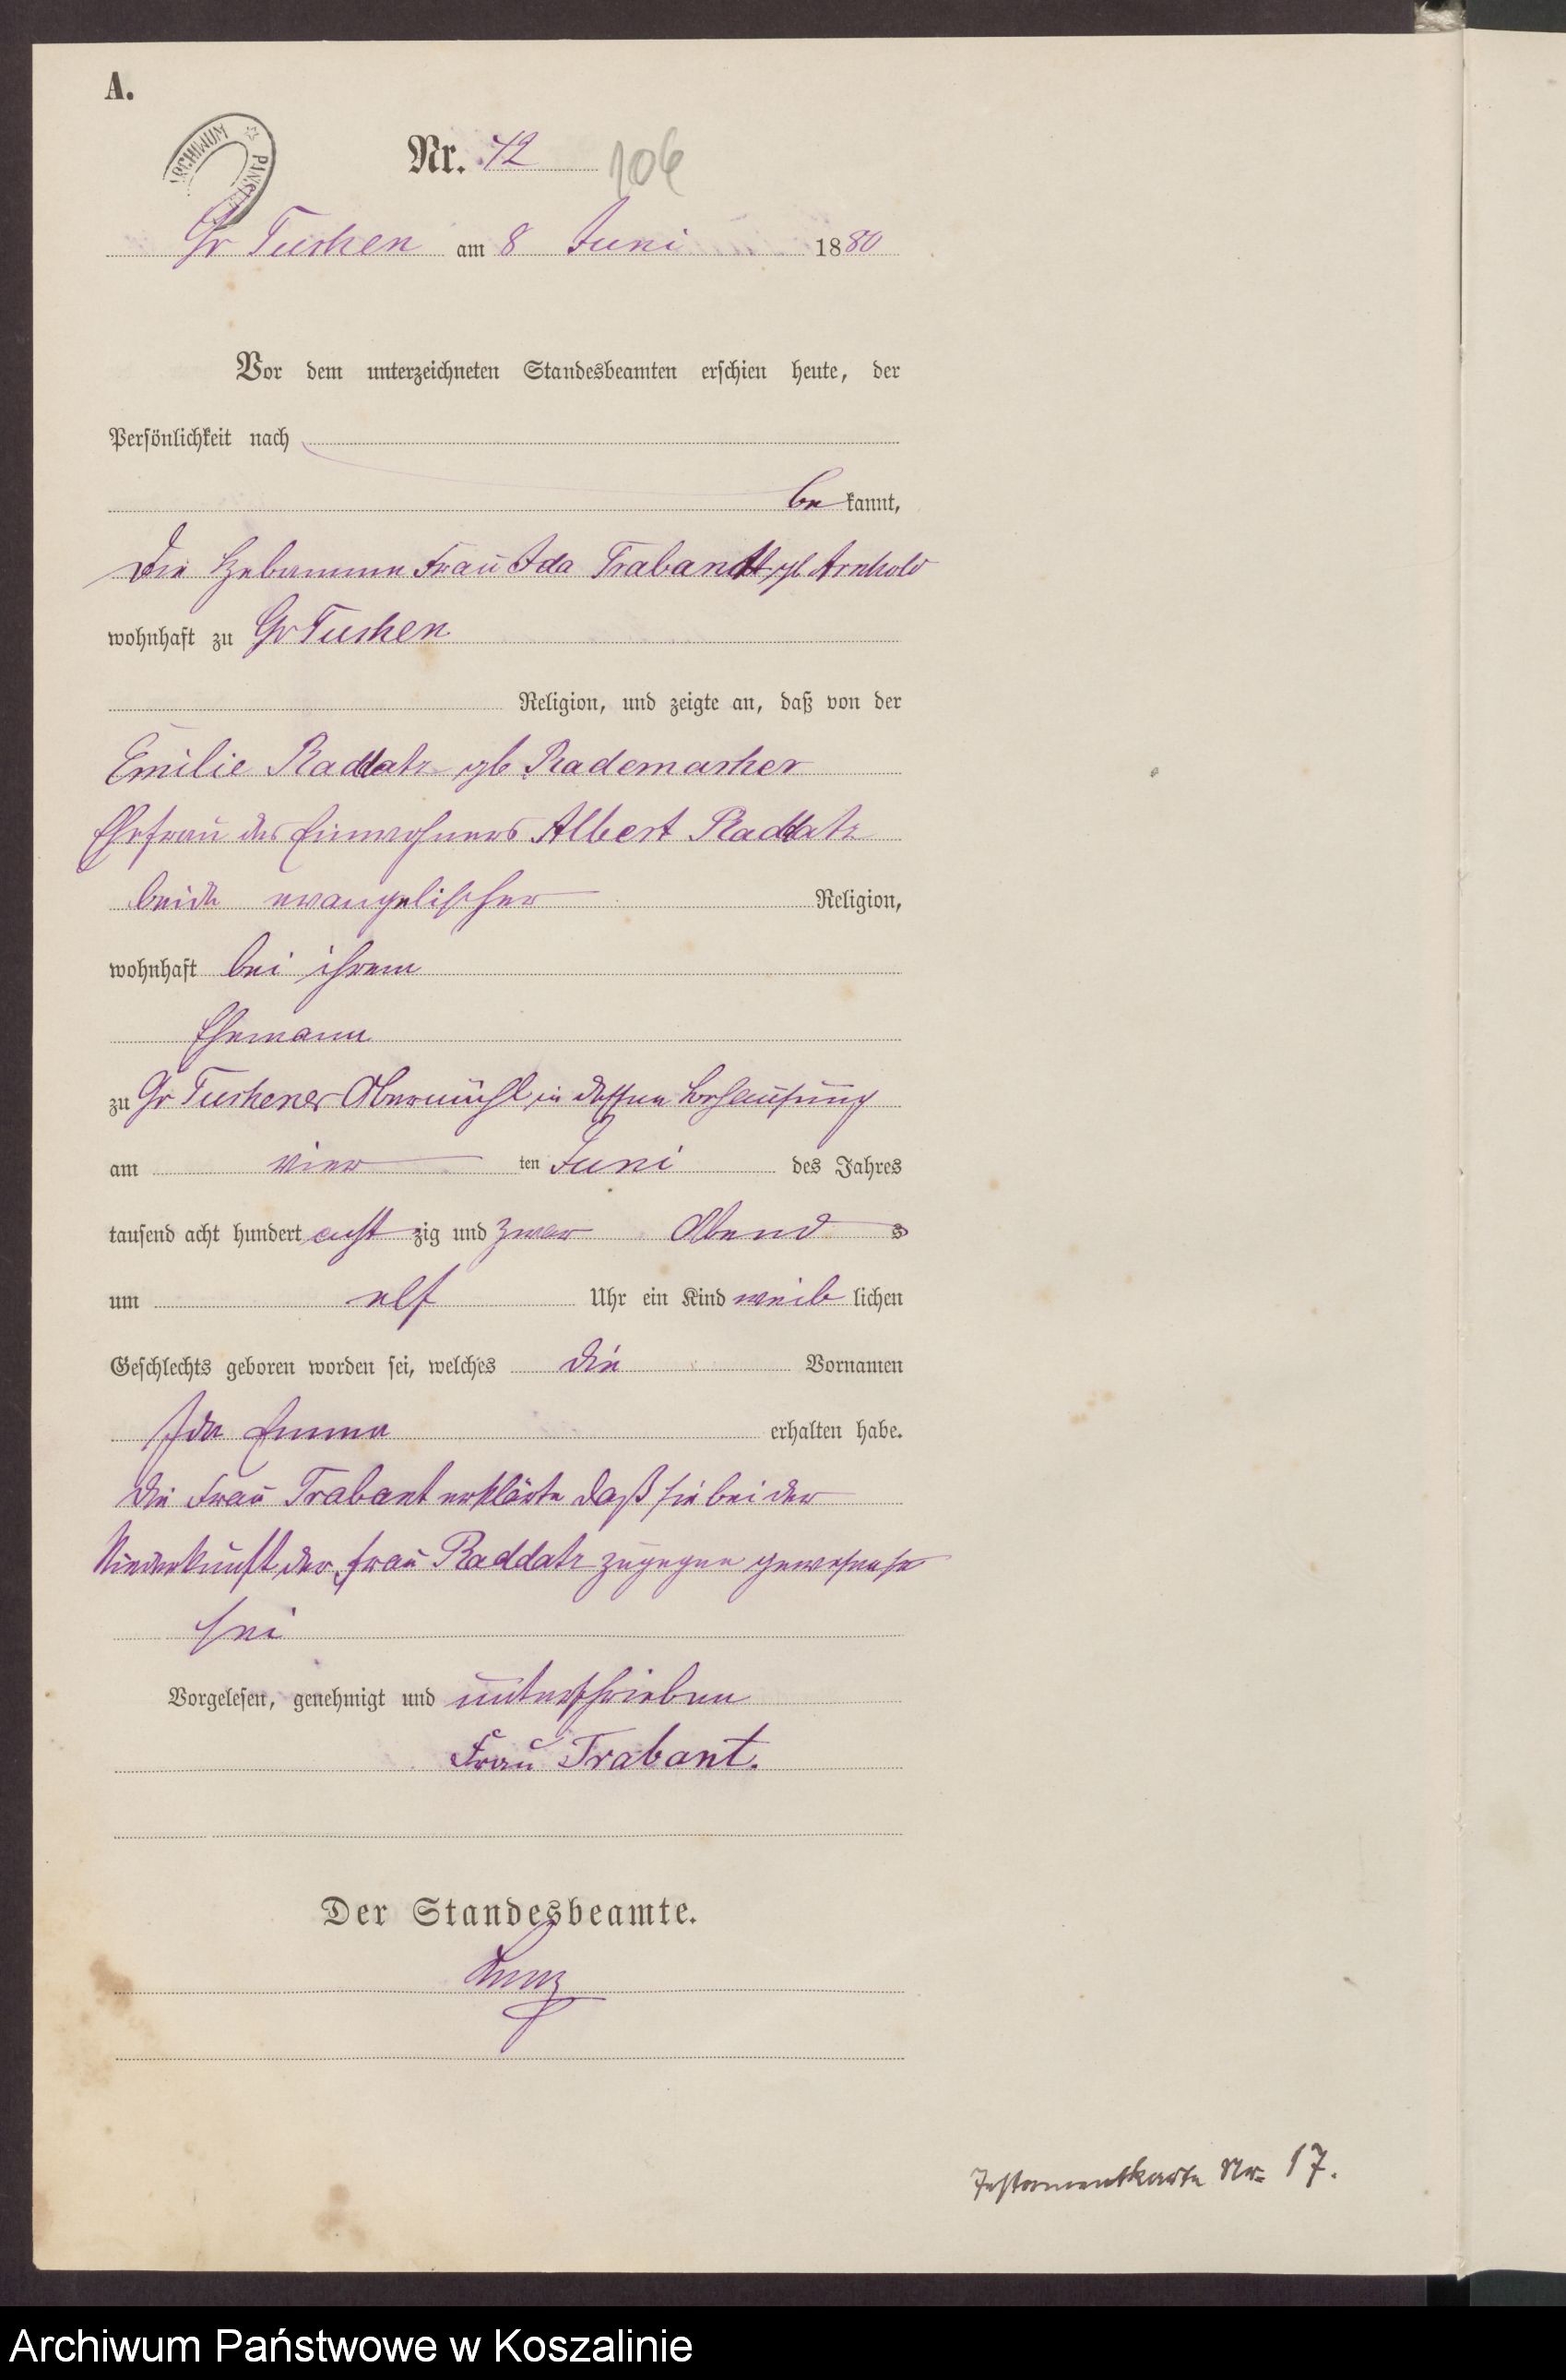 A.
ARCHIWUM PAŃSTW
Nr. 42 106
Gr Tuchen am 8 Juni 1880
Vor dem unterzeichneten Standesbeamten erschien heute, der
Persönlichkeit nach
be kannt,
die Hebamme Frau Ida Trabandt gb Arnhold
wohnhaft zu Gr Tuchen
Religion, und zeigte an, daß von der
Emilie Raddatz gb Rademacher
Ehefrau des Einwohners Albert Raddatz
beide evangelischer Religion,
wohnhaft bei ihrem
Ehemann
zu Gr Tuchener Obermühl in dessen Behausung
am vier ten Juni des Jahres
tausend acht hundert acht zig und zwar Abend s
um elf Uhr ein Kind weib lichen
Geschlechts geboren worden sei, welches die Vornamen
Ida Emma erhalten habe.
die Frau Trabant erklärte daß sie bei der
Niederkunft der Frau Raddatz zugegen
sei
Vorgelesen, genehmigt und unterschrieben
Frau Trabant.
Der Standesbeamte.
Testamentkarte Nr. 17.
Archiwum Państwowe w Koszalinie